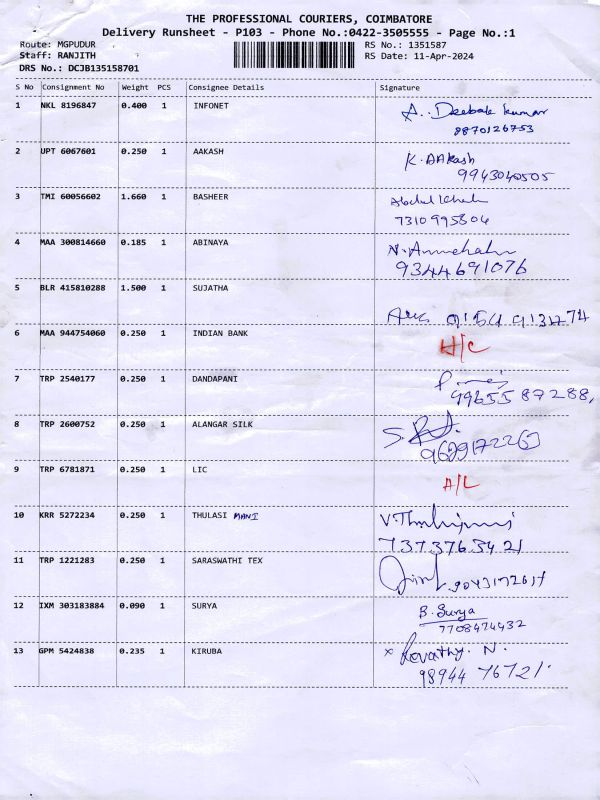 THE PROFESSIONAL COURIERS, COIMBATORE
Delivery Runsheet - P103 - Phone No.:0422-3505555 - Page No.:1
Route: MGPUDUR RS No.: 1351587
Staff: RANJITH RS Date: 11-Apr-2024
DRS No.: DCJB135158701
S No Consignment No Weight PCS Consignee Details Signature
1 NKL 8196847 0.400 1 INFONET A. Deebak kumar
8870126753
2 UPT 6067601 0.250 1 AAKASH K. AAKash
9943040505
3 TMI 60056602 1.660 1 BASHEER Abdul
7310995804
4 MAA 300814660 0.185 1 ABINAYA N.
9344691076
5 BLR 415810288 1.500 1 SUJATHA
6 MAA 944754060 0.250 1 INDIAN BANK H/C
7 TRP 2540177 0.250 1 DANDAPANI
9965587288,
8 TRP 2600752 0.250 1 ALANGAR SILK S.
9 TRP 6781871 0.250 1 LIC A/L
10 KRR 5272234 0.250 1 THULASI MANI V.
7373763421
11 TRP 1221283 0.250 1 SARASWATHI TEX
12 IXM 303183884 0.090 1 SURYA B. Surya
7708474432
13 GPM 5424838 0.235 1 KIRUBA x Revathy. N.
98944 76721.